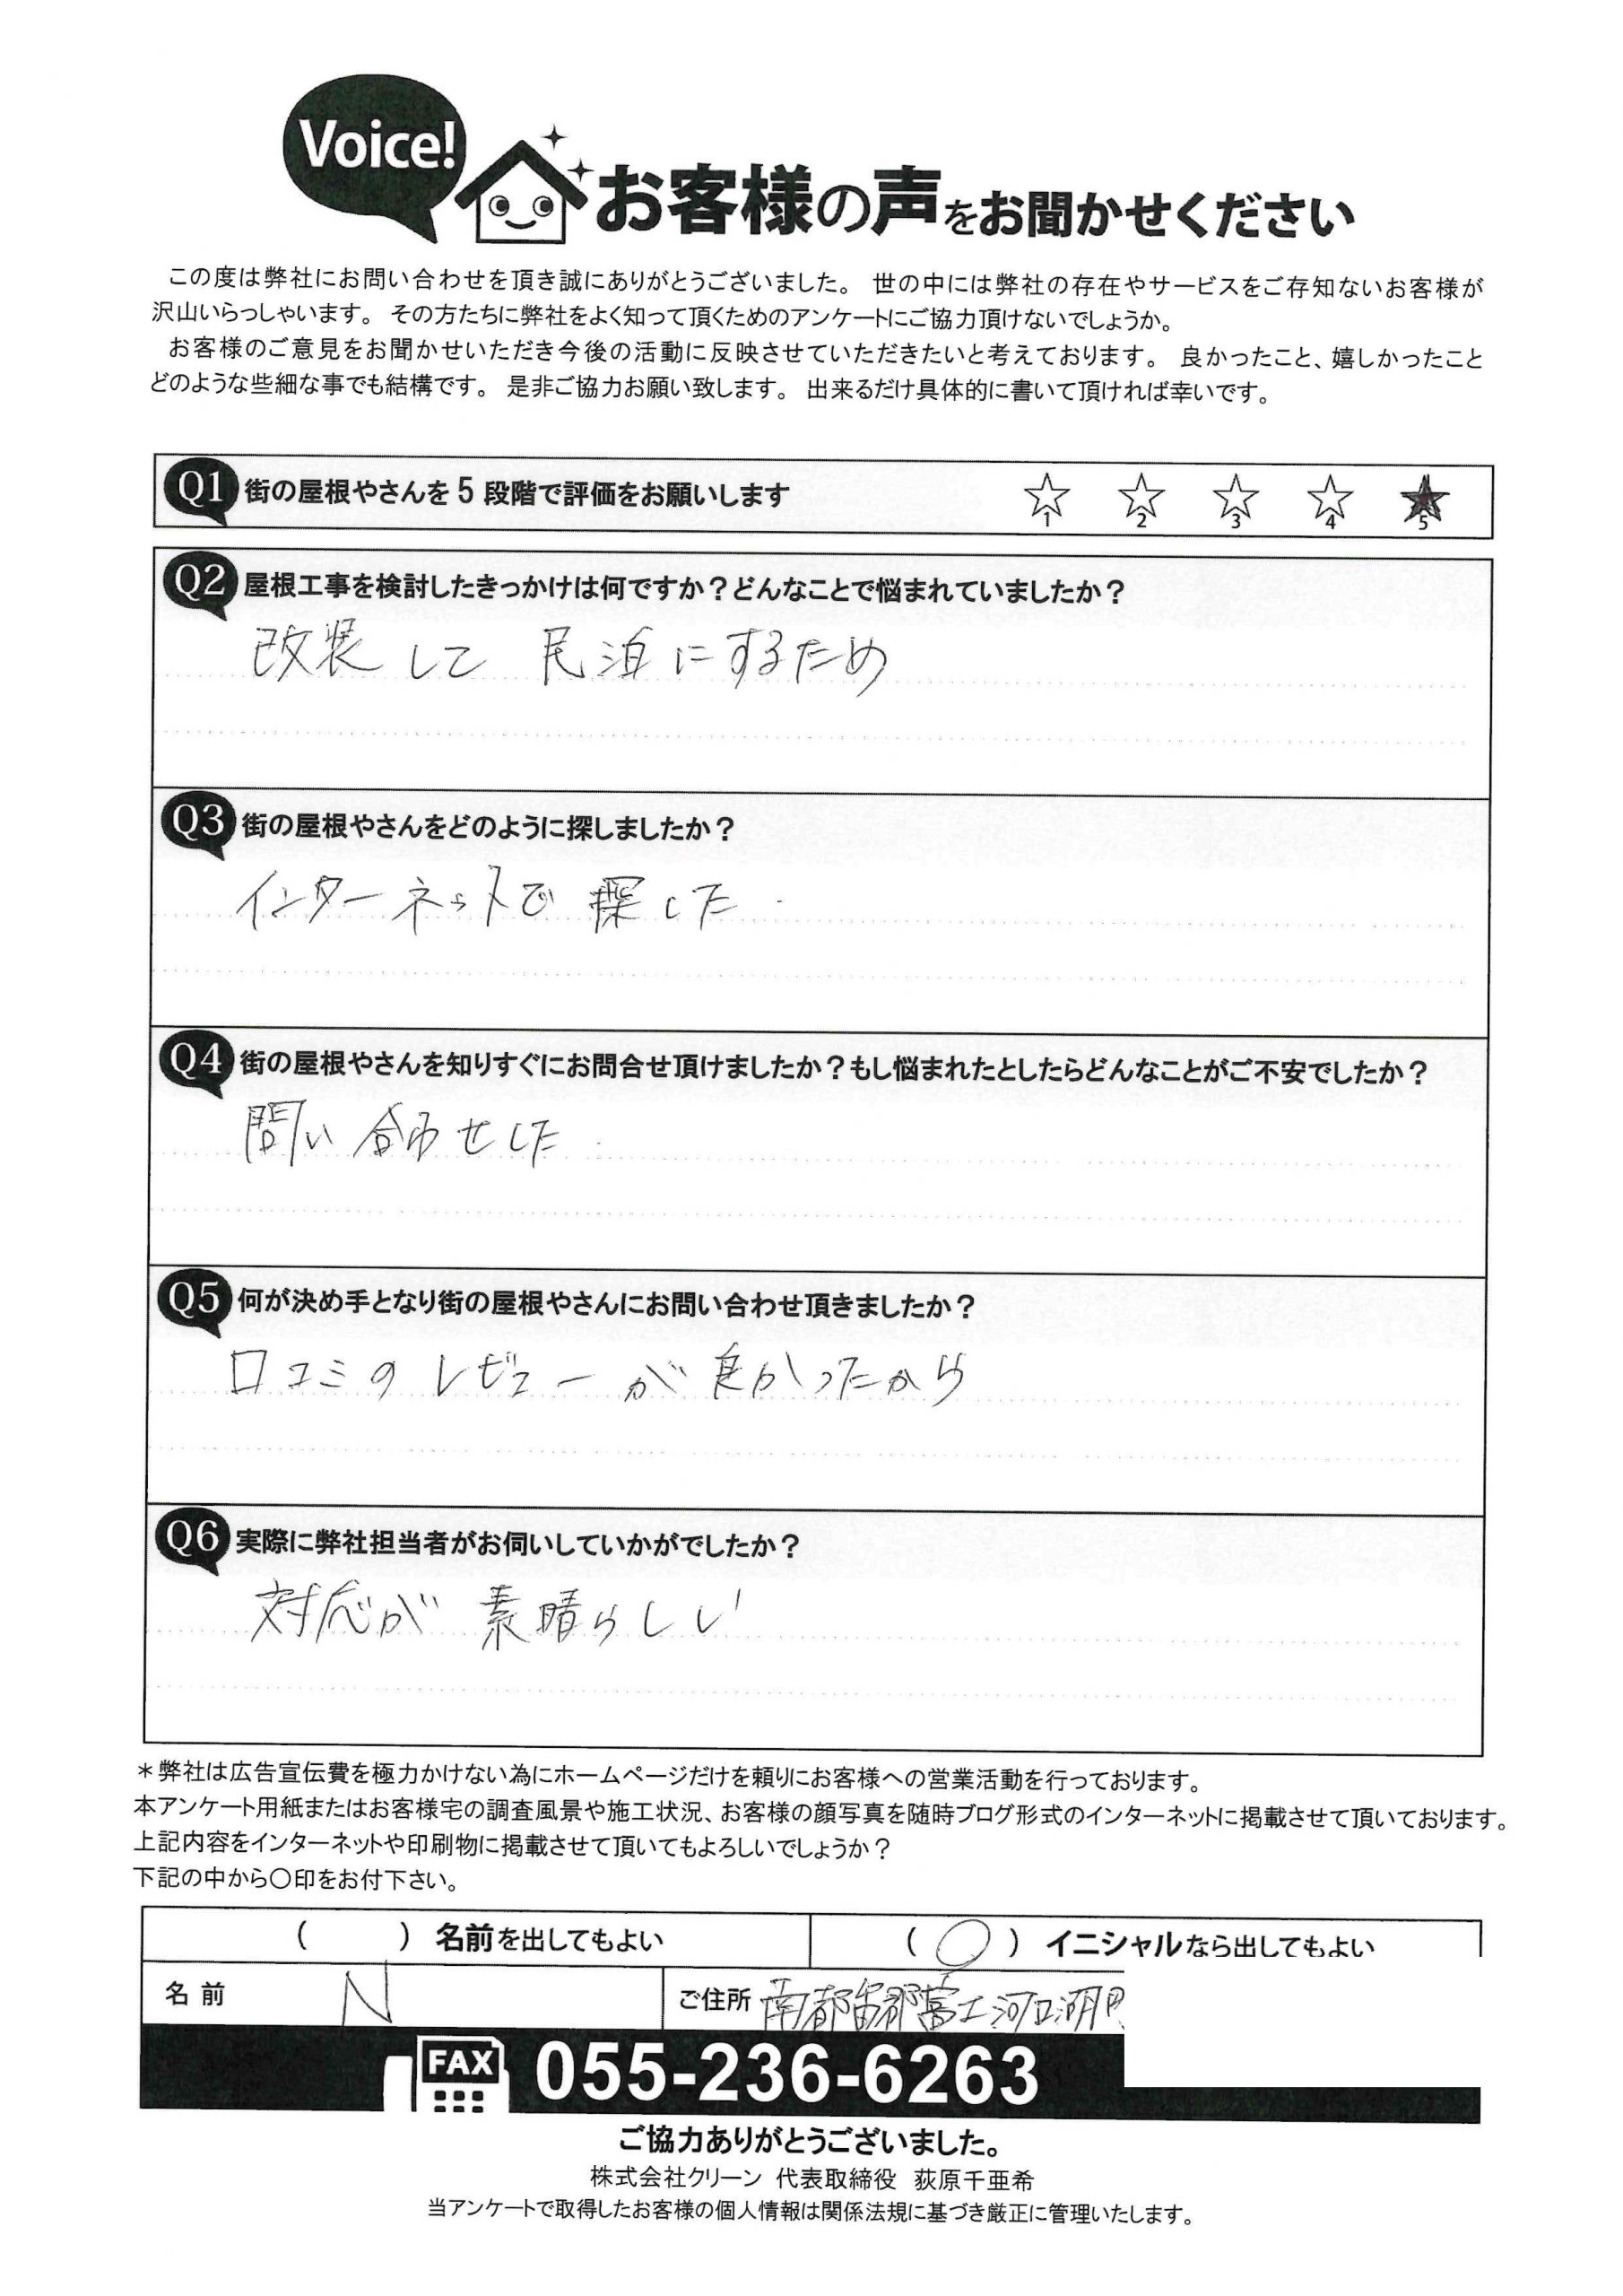 Voice!
お客様の声をお聞かせください
この度は弊社にお問い合わせを頂き誠にありがとうございました。 世の中には弊社の存在やサービスをご存知ないお客様が
沢山いらっしゃいます。 その方たちに弊社をよく知って頂くためのアンケートにご協力頂けないでしょうか。
お客様のご意見をお聞かせいただき今後の活動に反映させていただきたいと考えております。 良かったこと、嬉しかったこと
どのような些細な事でも結構です。 是非ご協力お願い致します。 出来るだけ具体的に書いて頂ければ幸いです。
Q1 街の屋根やさんを5段階で評価をお願いします ☆1 ☆2 ☆3 ☆4 ★5
Q2 屋根工事を検討したきっかけは何ですか？どんなことで悩まれていましたか？
改装して 民泊にするため
Q3 街の屋根やさんをどのように探しましたか？
インターネットで 探した
Q4 街の屋根やさんを知りすぐにお問合せ頂けましたか？もし悩まれたとしたらどんなことがご不安でしたか？
問い合わせした
Q5 何が決め手となり街の屋根やさんにお問い合わせ頂きましたか？
口コミの レビューが 良かったから
Q6 実際に弊社担当者がお伺いしていかがでしたか？
対応が 素晴らしい
＊弊社は広告宣伝費を極力かけない為にホームページだけを頼りにお客様への営業活動を行っております。
本アンケート用紙またはお客様宅の調査風景や施工状況、お客様の顔写真を随時ブログ形式のインターネットに掲載させて頂いております。
上記内容をインターネットや印刷物に掲載させて頂いてもよろしいでしょうか？
下記の中から〇印をお付下さい。
( ) 名前を出してもよい (〇) イニシャルなら出してもよい
名前 N ご住所 南都留郡富士河口湖町
FAX 055-236-6263
ご協力ありがとうございました。
株式会社クリーン 代表取締役 荻原千亜希
当アンケートで取得したお客様の個人情報は関係法規に基づき厳正に管理いたします。